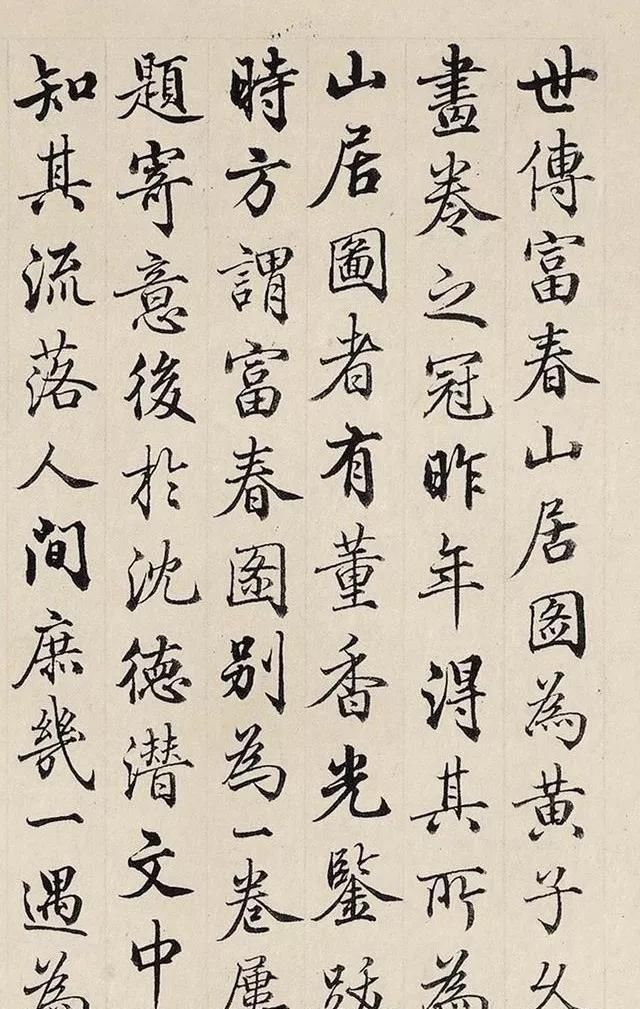 世傳富春山居圖為黃子久
畫卷之冠昨年得其所為
山居圖者有董香光鑒跋
時方謂富春圖别為一卷屢
題寄意後於沈德潛文中
知其流落人間庶幾一遇為